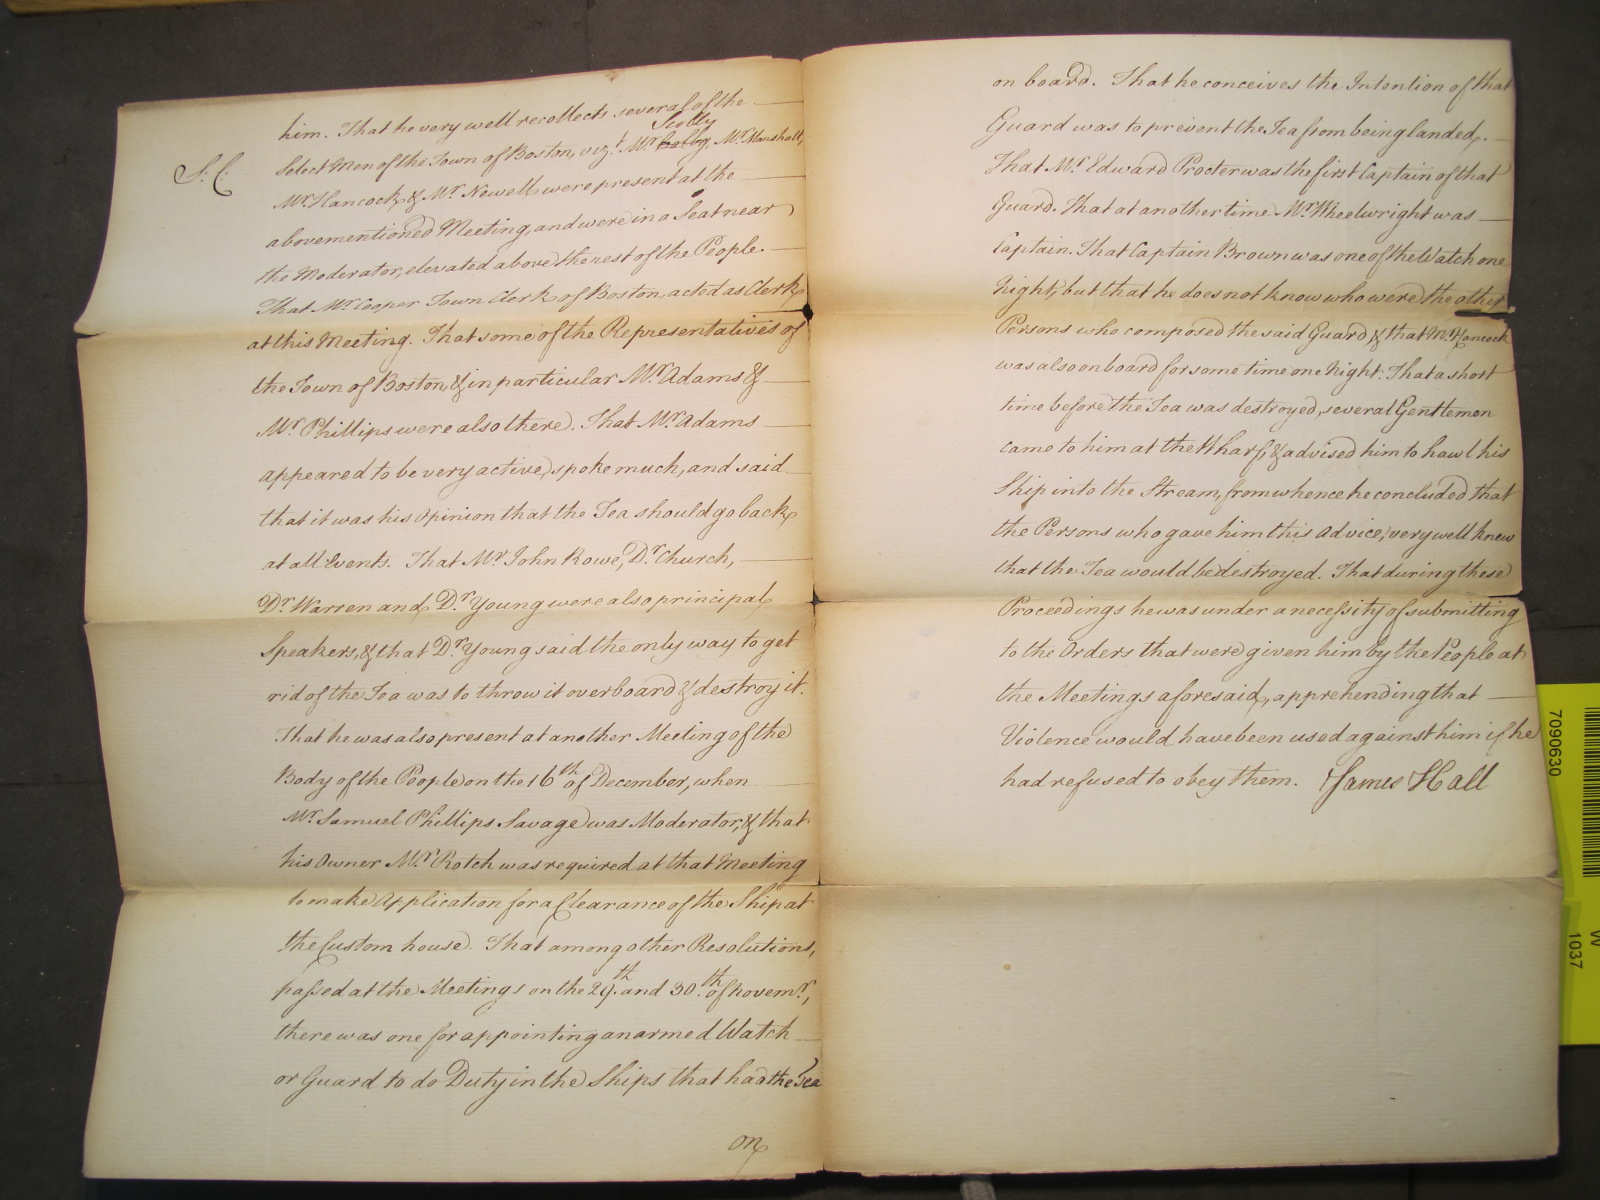 him. That he very well recollects several of the
Scolly
Select Men of the Town of Boston, vizt. Mr. Colby, Mr. Marshall,
S: C:
Mr. Hancock, & Mr. Newell, were present at the
abovementioned Meeting, and were in a Seat near
the Moderator, elevated above the rest of the People.
That Mr. Cooper Town Clerk of Boston, acted as Clerk
at this Meeting. That some of the Representatives of
the Town of Boston, & in particular Mr. Adams &
Mr. Phillips were also there. That Mr. Adams
appeared to be very active, spoke much, and said
that it was his Opinion that the Tea should go back
at all Events. That Mr. John Rowe, Dr. Church,
Dr. Warren and Dr. Young were also principal
Speakers, & that Dr. Young said the only way to get
rid of the Tea was to throw it overboard & destroy it.
That he was also present at another Meeting of the
Body of the People on the 16th of December, when
Mr. Samuel Phillips Savage was Moderator, & that
his Owner Mr. Rotch was required at that Meeting
to make Application for a Clearance of the Ship at
the Custom house. That among other Resolutions,
passed at the Meetings on the 29th. and 30th. of Novemr.,
there was one for appointing an armed Watch
or Guard to do Duty in the Ships that had the Tea
on
on board. That he conceives the Intention of that
Guard was to prevent the Tea from being landed.
That Mr. Edward Procter was the first Captain of that
Guard. That at another time Mr. Wheelwright was
Captain. That Captain Brown was one of the Watch one
Night, but that he does not know who were the other
Persons who composed the said Guard & that Mr. Hancock
was also on board for some time one Night. That a short
time before the Tea was destroyed, several Gentlemen
came to him at the Wharf, & advised him to hawl his
Ship into the Stream, from whence he concluded that
the Persons who gave him this Advice, very well knew
that the Tea would be destroyed. That during these
Proceedings he was under a necessity of submitting
to the Orders that were given him by the People at
the Meetings aforesaid, apprehending that
Violence would have been used against him if he
had refused to obey them. James Hall
7090630
W
1037